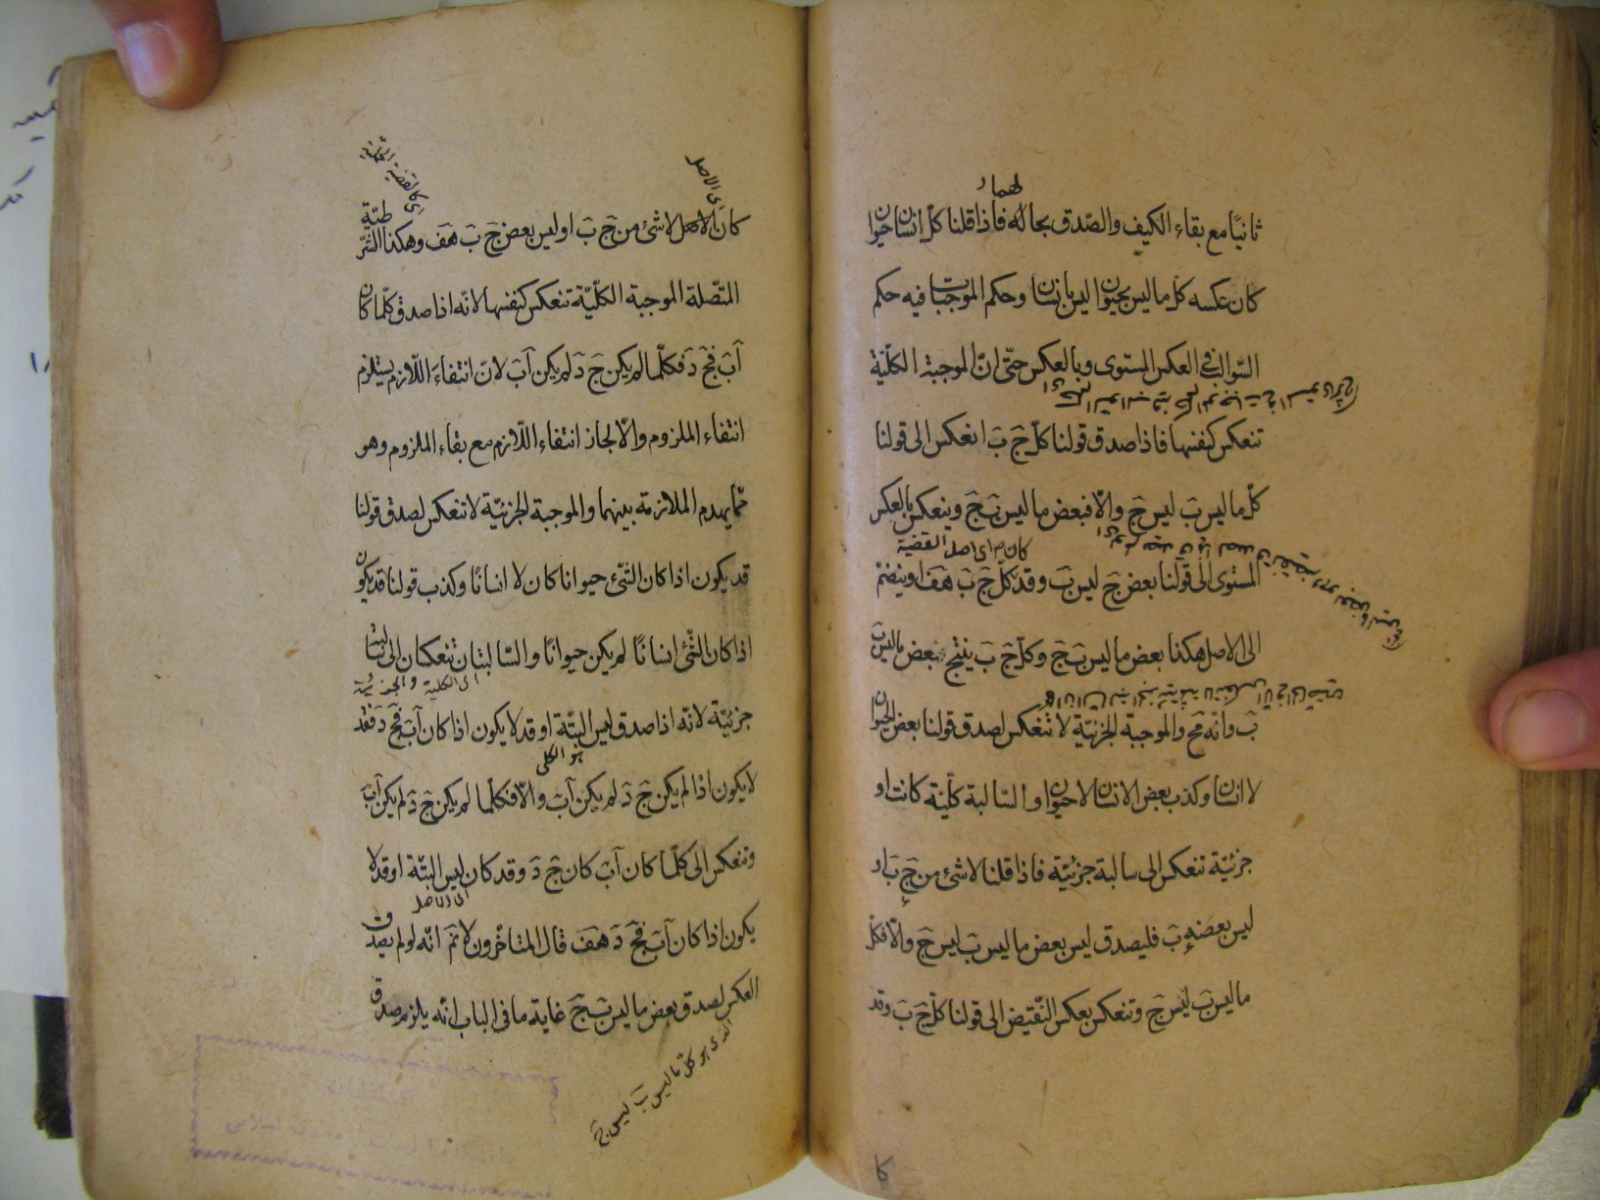 ثانيًا مع بقاء الكيف والصّدق بحاله فاذا قلنا كلّ انسان حيوان
كان عكسه كلّ ما ليس بحيوان ليس بانسان وحكم الموجبات فيه حكم
السّوالب في العكس المستوى وبالعكس حتّى انّ الموجبة الكلّيّة
تنعكس كنفسها فاذا صدق قولنا كلّ جَ بَ انعكس الى قولنا
كلّ ما ليس بَ ليس جَ والّا فبعض ما ليس بَ جَ وينعكس بالعكس
كان اى اصل القضية
المستوى الى قولنا بعض جَ ليس بَ وقد كلّ جَ بَ هَفَ او ينضمّ
الى الاصل هكذا بعض ما ليس بَ جَ وكلّ جَ بَ ينتج بعض ما ليس بَ
بَ وانه مح والموجبة الجزئيّة لا تنعكس لصدق قولنا بعض الحيوان
لا انسان وكذب بعض الانسان لا حيوان والسّالبة كلّيّة كانت او
جزئيّة تنعكس الى سالبة جزئيّة فاذا قلنا لا شئ من جَ بَ او
ليس بعضه بَ فليصدق ليس بعض ما ليس بَ ليس جَ والّا فكلّ
ما ليس بَ ليس جَ وتنعكس بعكس النّقيض الى قولنا كلّ جَ بَ وقد
اى الاصل
كان الاصل لا شئ من جَ بَ او ليس بعض جَ بَ هَفَ وهكذا الشّرطيّة
المتّصلة الموجبة الكلّيّة تنعكس كنفسها لانّه اذا صدق كلّما كان
آبَ فجَ دَ فكلّما لم يكن جَ دَ لم يكن آبَ لانّ انتفاء اللّازم يستلزم
انتفاء الملزوم والّا لجاز انتفاء اللّازم مع بقاء الملزوم وهو
ممّا يهدم الملازمة بينهما والموجبة الجزئيّة لا تنعكس لصدق قولنا
قد يكون اذا كان الشّئ حيوانا كان لا انسانًا وكذب قولنا قد يكون
اذا كان الشّئ انسانًا لم يكن حيوانًا والسّالبتان تنعكسان الى سالبة
اى الكلية والجزئية
جزئيّة لانّه اذا صدق ليس البتّة او قد لا يكون اذا كان آبَ فجَ دَ فقد
هو الكلى
لا يكون اذا لم يكن جَ دَ لم يكن آبَ والّا فكلّما لم يكن جَ دَ لم يكن آبَ
وتنعكس الى كلّما كان آبَ كان جَ دَ وقد كان ليس البتّة او قد لا
اى الاصل
يكون اذا كان آبَ فجَ دَ هَفَ قال المتاخّرون لا نمَ انّه لو لم يصدق
العكس لصدق بعض ما ليس بَ جَ غاية ما فى الباب انّه يلزم صدق
الذى هو كلّ ما ليس بَ ليس جَ